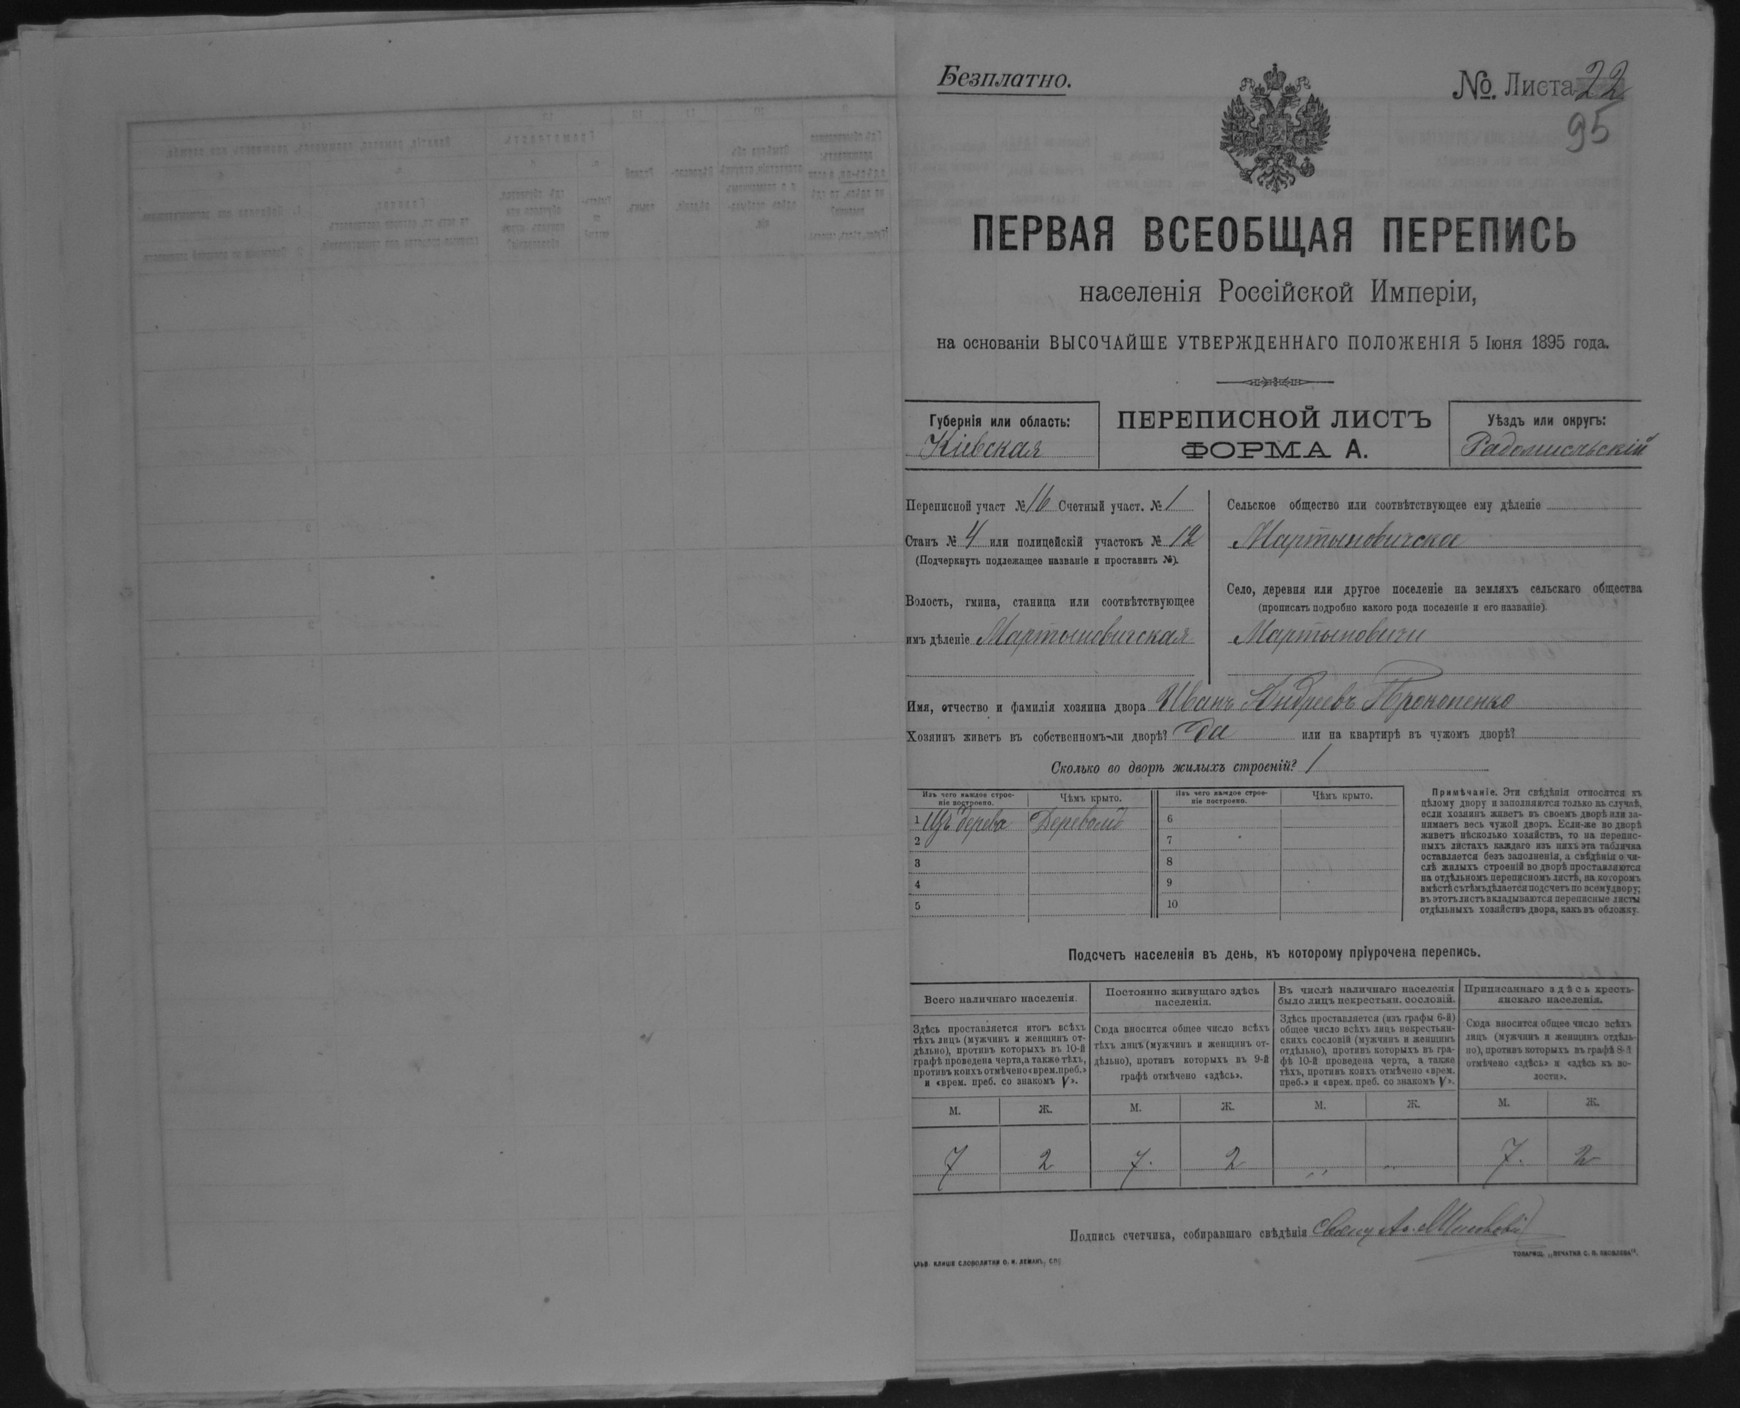 Безплатно.
№. Листа 22
95
ПЕРВАЯ ВСЕОБЩАЯ ПЕРЕПИСЬ
населенія Россійской Имперіи,
на основаніи ВЫСОЧАЙШЕ УТВЕРЖДЕННАГО ПОЛОЖЕНІЯ 5 Іюня 1895 года.
Губернія или область:
Кіевская
ПЕРЕПИСНОЙ ЛИСТЪ
ФОРМА А.
Уѣздъ или округъ:
Радомысльскій
Переписной участ № 16 Счетный участ. № 1
Станъ № 4 или полицейскій участокъ № 12
(Подчеркнуть подлежащее названіе и проставить №).
Волость, гмина, станица или соотвѣтствующее
имъ дѣленіе Мартыновичская
Сельское общество или соотвѣтствующее ему дѣленіе
Мартыновичское
Село, деревня или другое поселеніе на земляхъ сельскаго общества
(прописать подробно какого рода поселеніе и его названіе).
Мартыновичи
Имя, отчество и фамилія хозяина двора Иванъ Андреевъ Прокопенко
Хозяинъ живетъ въ собственномъ-ли дворѣ? Да или на квартирѣ въ чужомъ дворѣ?
Сколько во дворѣ жилыхъ строеній? 1
Изъ чего каждое строе-
ніе построено.
Чѣмъ крыто.
Изъ чего каждое строе-
ніе построено.
Чѣмъ крыто.
1 Изъ дерева Деревомъ 6
2 7
3 8
4 9
5 10
Примѣчаніе. Эти свѣдѣнія относятся къ
цѣлому двору и заполняются только въ случаѣ,
если хозяинъ живетъ въ своемъ дворѣ или за-
нимаетъ весь чужой дворъ. Если-же во дворѣ
живетъ нѣсколько хозяйствъ, то на перепис-
ныхъ листахъ каждаго изъ нихъ эта табличка
оставляется безъ заполненія, а свѣдѣнія о чи-
слѣ жилыхъ строеній во дворѣ проставляются
на отдѣльномъ переписномъ листѣ, на которомъ
вмѣстѣ съ тѣмъ дѣлается подсчетъ по всему двору;
въ этотъ листъ вкладываются переписные листы
отдѣльныхъ хозяйствъ двора, какъ въ обложку.
Подсчетъ населенія въ день, къ которому пріурочена перепись.
Всего наличнаго населенія.
Здѣсь проставляется итогъ всѣхъ
тѣхъ лицъ (мужчинъ и женщинъ от-
дѣльно), противъ которыхъ въ 10-й
графѣ проведена черта, а также тѣхъ,
противъ коихъ отмѣчено «врем. преб.»
и «врем. преб. со знакомъ V».
Постоянно живущаго здѣсь
населенія.
Сюда вносится общее число всѣхъ
тѣхъ лицъ (мужчинъ и женщинъ от-
дѣльно), противъ которыхъ въ 9-й
графѣ отмѣчено «здѣсь».
Въ числѣ наличнаго населенія
было лицъ некрестьян. сословій.
Здѣсь проставляется (изъ графы 6-й)
общее число всѣхъ лицъ некрестьян-
скихъ сословій (мужчинъ и женщинъ
отдѣльно), противъ которыхъ въ гра-
фѣ 10-й проведена черта, а также
тѣхъ, противъ коихъ отмѣчено «врем.
преб.» и «врем. преб. со знакомъ V».
Приписаннаго здѣсь кресть-
янскаго населенія.
Сюда вносится общее число всѣхъ
лицъ (мужчинъ и женщинъ отдѣль-
но), противъ которыхъ въ графѣ 8-й
отмѣчено «здѣсь» и «здѣсь къ во-
лости».
М. Ж. М. Ж. М. Ж. М. Ж.
7 2 7. 2 „ „ 7. 2
Подпись счетчика, собиравшаго свѣдѣнія